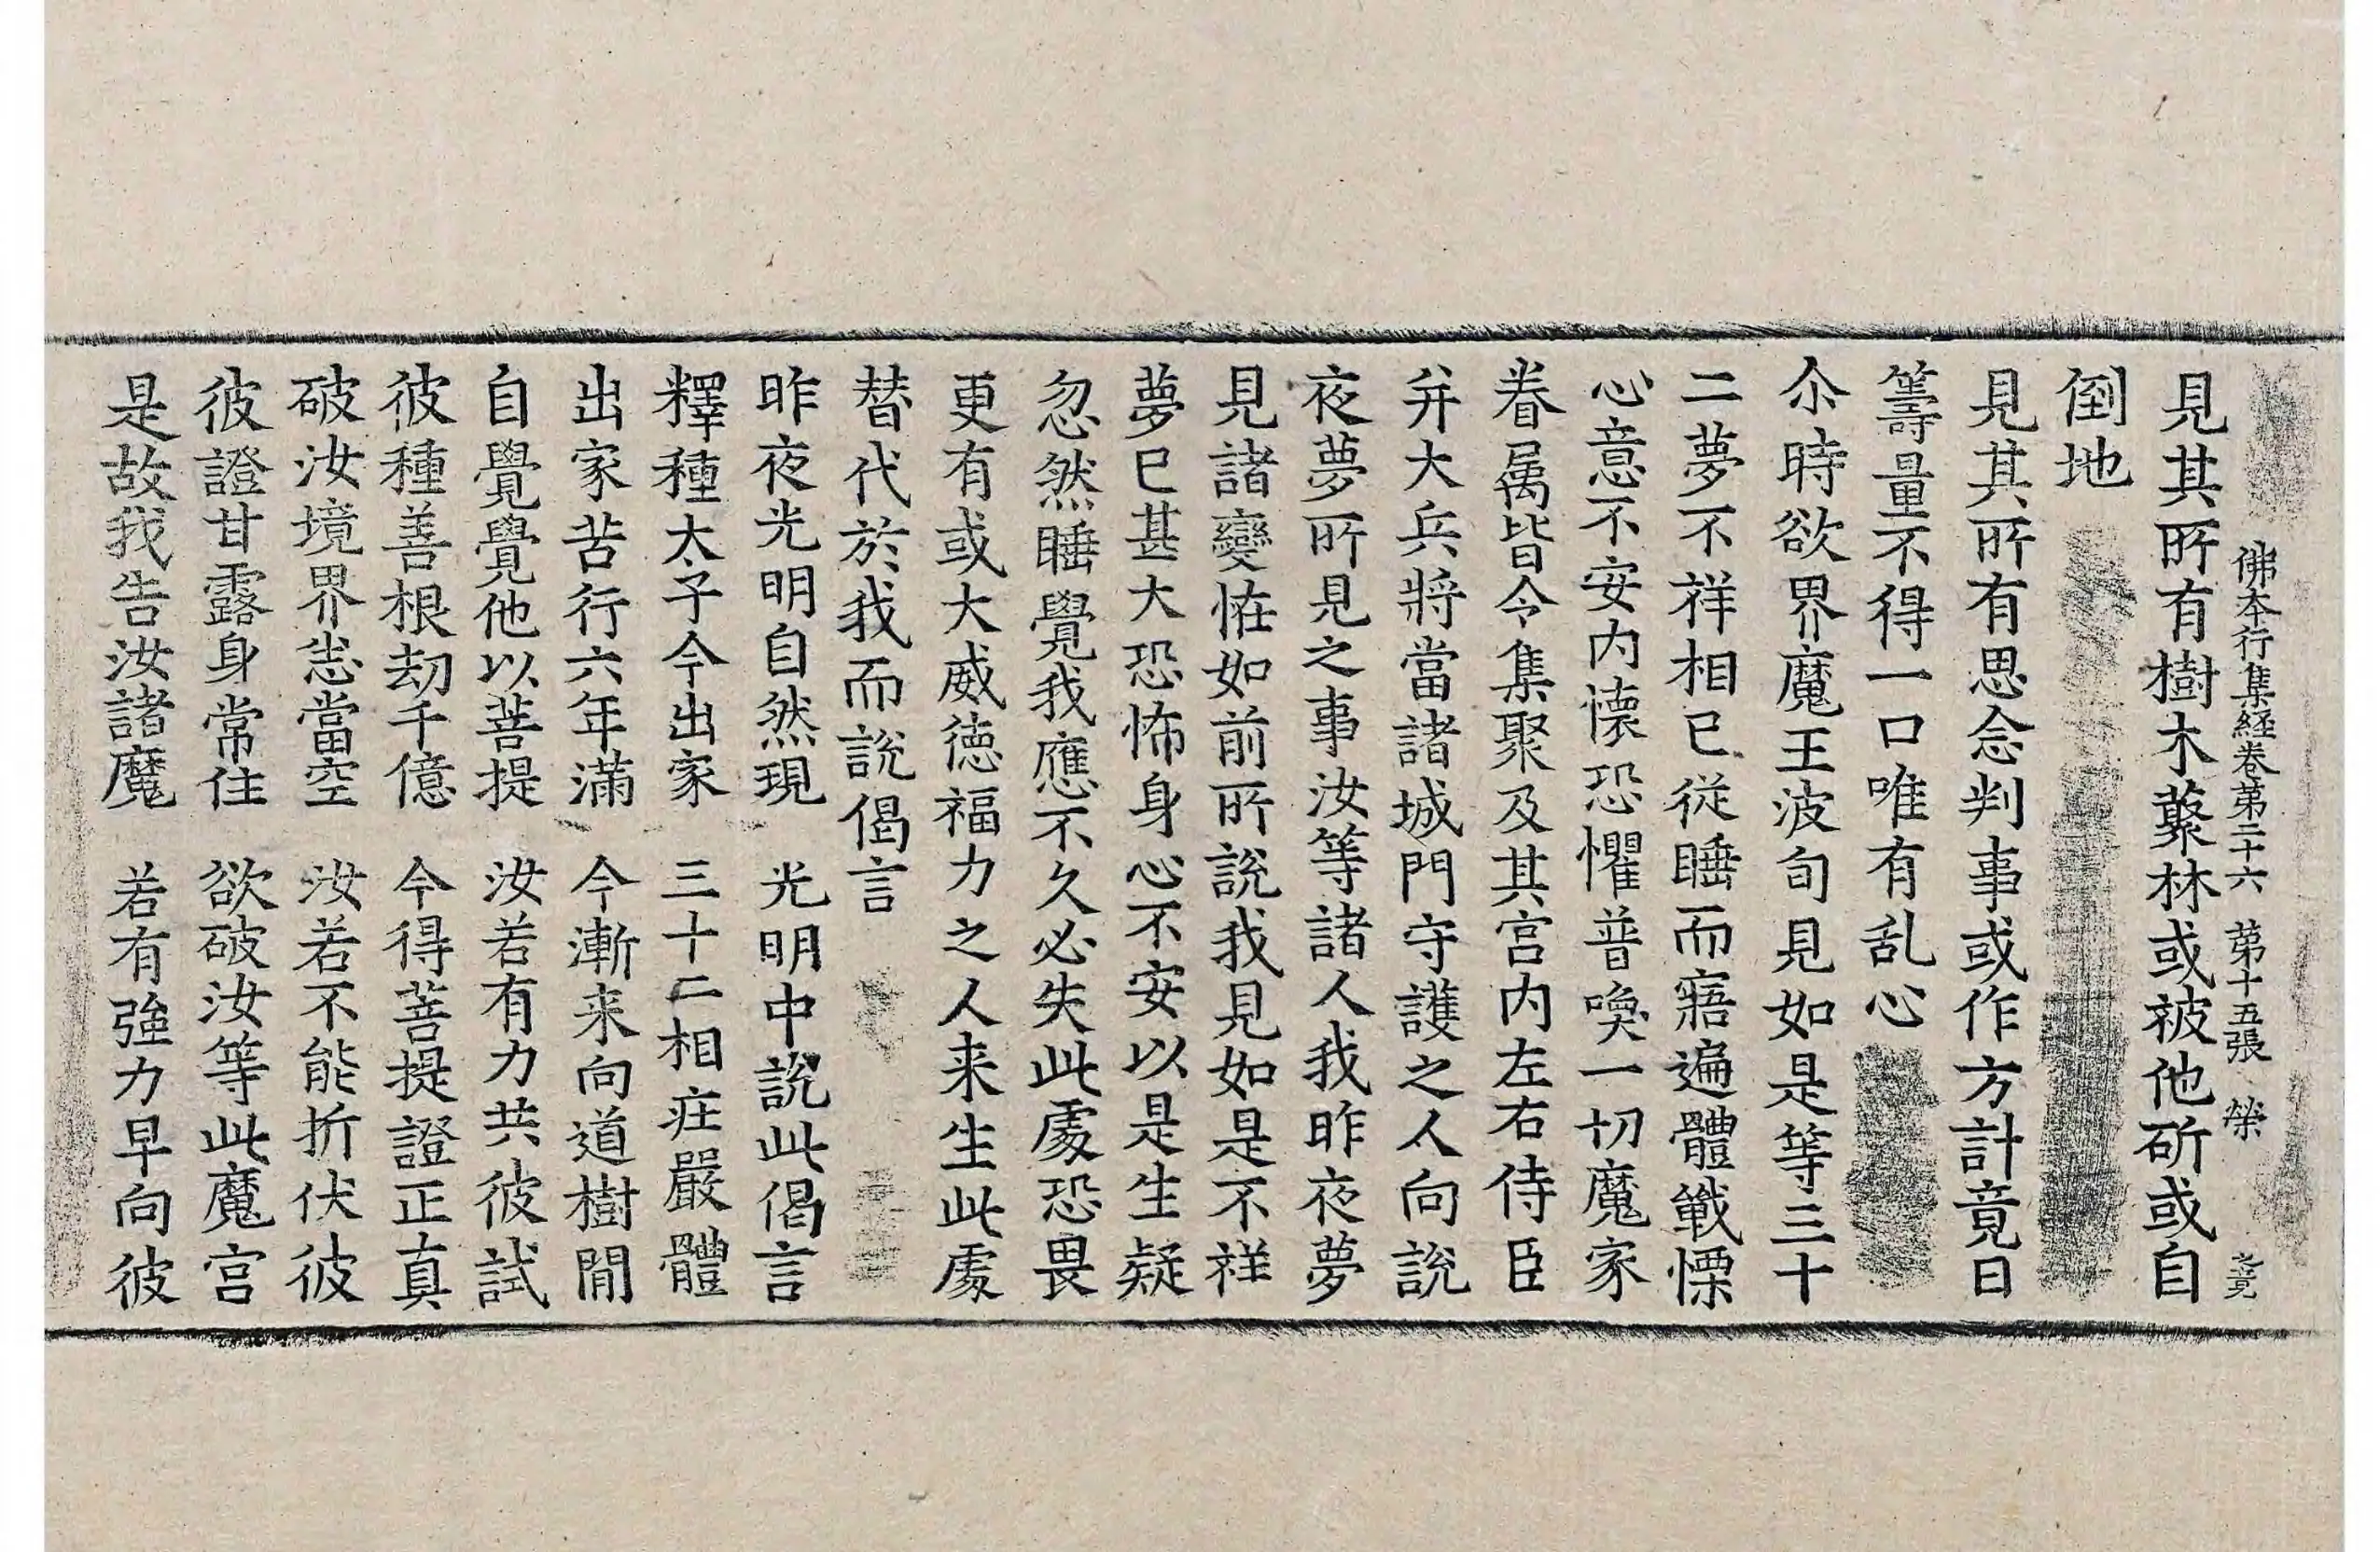 佛本行集経卷第二十六 第十五張 榮
見其所有樹木藂林或被他斫或自
倒地
見其所有思念判事或作方計竟日
籌量不得一口唯有乱心
尒時欲界魔王波旬見如是等三十
二夢不祥相已從睡而寤遍體戰慄
心意不安内懷恐懼普喚一切魔家
眷属皆令集聚及其宫内左右侍臣
并大兵將當諸城門守護之人向說
夜夢所見之事汝等諸人我昨夜夢
見諸變恠如前所說我見如是不祥
夢已甚大恐怖身心不安以是生疑
忽然睡覺我應不久必失此處恐畏
更有或大威徳福力之人来生此處
替代於我而說偈言
昨夜光明自然現 光明中說此偈言
釋種太子今出家 三十二相庄嚴體
出家苦行六年滿 今漸来向道樹閒
自覺覺他以菩提 汝若有力共彼試
彼種善根劫千億 今得菩提證正真
破汝境界悉當空 汝若不能折伏彼
彼證甘露身常住 欲破汝等此魔宫
是故我告汝諸魔 若有強力早向彼